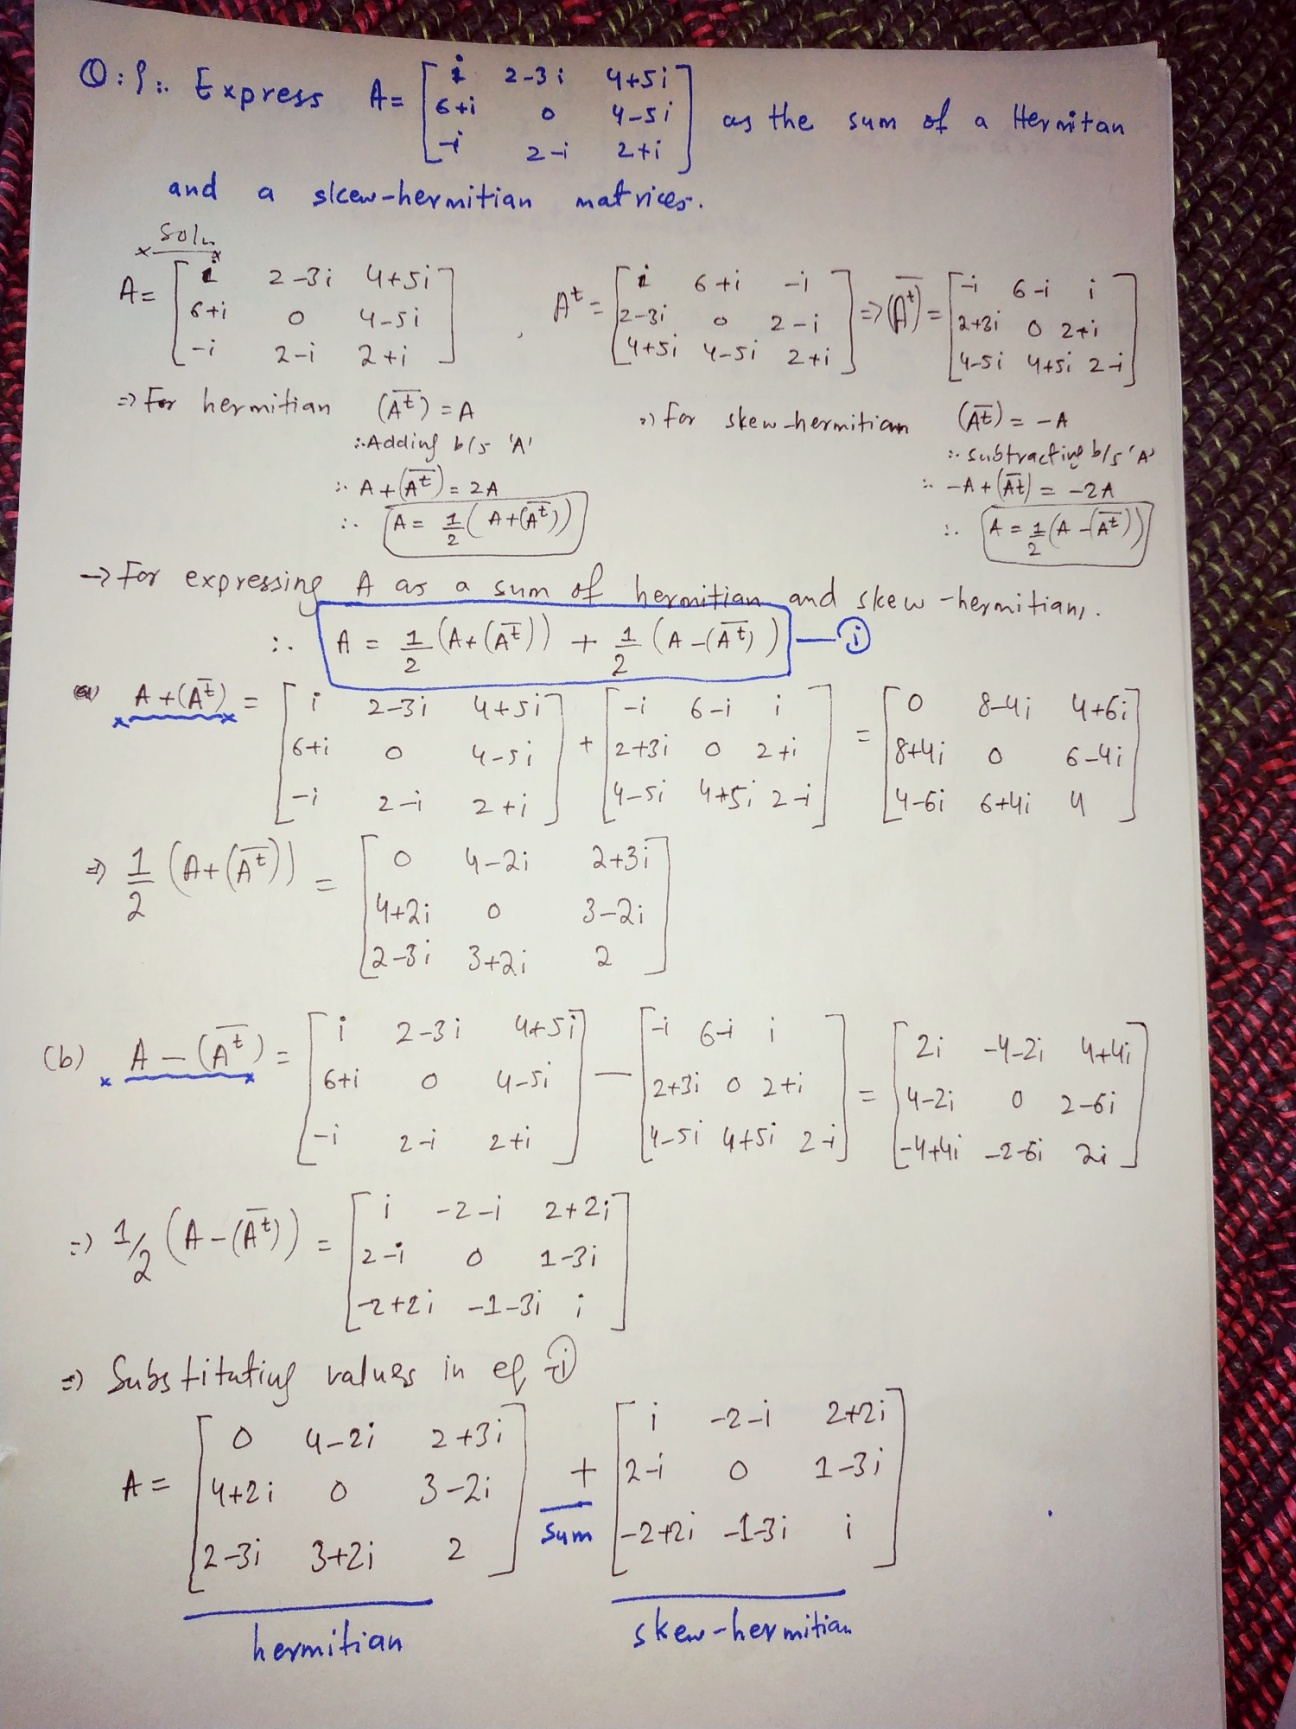 Q:9:. Express A= [i 2-3i 4+5i; 6+i 0 4-5i; -i 2-i 2+i] as the sum of a Hermitan
and a skew-hermitian matrices.
Soln
A= [i 2-3i 4+5i; 6+i 0 4-5i; -i 2-i 2+i] , Aᵗ = [i 6+i -i; 2-3i 0 2-i; 4+5i 4-5i 2+i] => (A̅ᵗ) = [-i 6-i i; 2+3i 0 2+i; 4-5i 4+5i 2-i]
=> For hermitian (A̅ᵗ) = A
∴ Adding b/s 'A'
∴ A+(A̅ᵗ) = 2A
∴ A = 1/2 (A+(A̅ᵗ))
=> for skew-hermitian (A̅ᵗ) = -A
∴ subtracting b/s 'A'
∴ -A+(A̅ᵗ) = -2A
∴ A = 1/2 (A-(A̅ᵗ))
→ For expressing A as a sum of hermitian and skew-hermitian,.
∴ A = 1/2 (A+(A̅ᵗ)) + 1/2 (A-(A̅ᵗ)) — (i)
(a) A+(A̅ᵗ) = [i 2-3i 4+5i; 6+i 0 4-5i; -i 2-i 2+i] + [-i 6-i i; 2+3i 0 2+i; 4-5i 4+5i 2-i] = [0 8-4i 4+6i; 8+4i 0 6-4i; 4-6i 6+4i 4]
=> 1/2 (A+(A̅ᵗ)) = [0 4-2i 2+3i; 4+2i 0 3-2i; 2-3i 3+2i 2]
(b) A-(A̅ᵗ) = [i 2-3i 4+5i; 6+i 0 4-5i; -i 2-i 2+i] - [-i 6-i i; 2+3i 0 2+i; 4-5i 4+5i 2-i] = [2i -4-2i 4+4i; 4-2i 0 2-6i; -4+4i -2-6i 2i]
=> 1/2 (A-(A̅ᵗ)) = [i -2-i 2+2i; 2-i 0 1-3i; -2+2i -1-3i i]
=> Substituting values in eq (i)
A = [0 4-2i 2+3i; 4+2i 0 3-2i; 2-3i 3+2i 2] + [i -2-i 2+2i; 2-i 0 1-3i; -2+2i -1-3i i]
sum
hermitian skew-hermitian